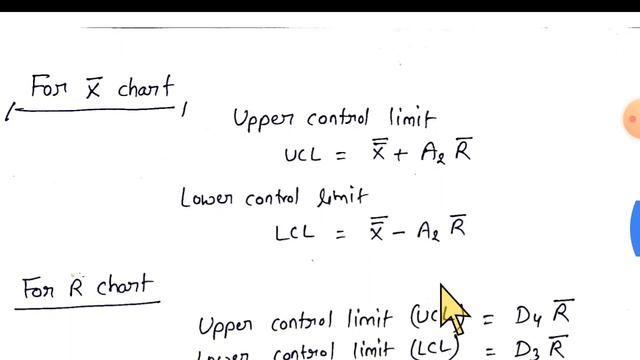 For X̄ chart
Upper control limit
UCL = X̿ + A₂ R̄
Lower control limit
LCL = X̿ − A₂ R̄
For R chart
Upper control limit (UCL) = D₄ R̄
Lower control limit (LCL) = D₃ R̄